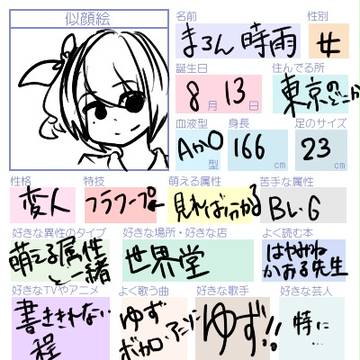 似顔絵
名前
まろん 時雨
性別
女
誕生日
8月13日
住んでる所
東京のどこか
血液型
AかO型
身長
166cm
足のサイズ
23cm
性格
変人
特技
フラフープ
萌える属性
見れば分かる
苦手な属性
BL・G
好きな異性のタイプ
萌える属性
と一緒
好きな場所・好きな店
世界堂
よく読む本
はやみね
かおる先生
好きなTVやアニメ
書ききれない
程
よく歌う曲
ゆず
ボカロ・アニソン
好きな歌手
ゆず!!
好きな芸人
特に…